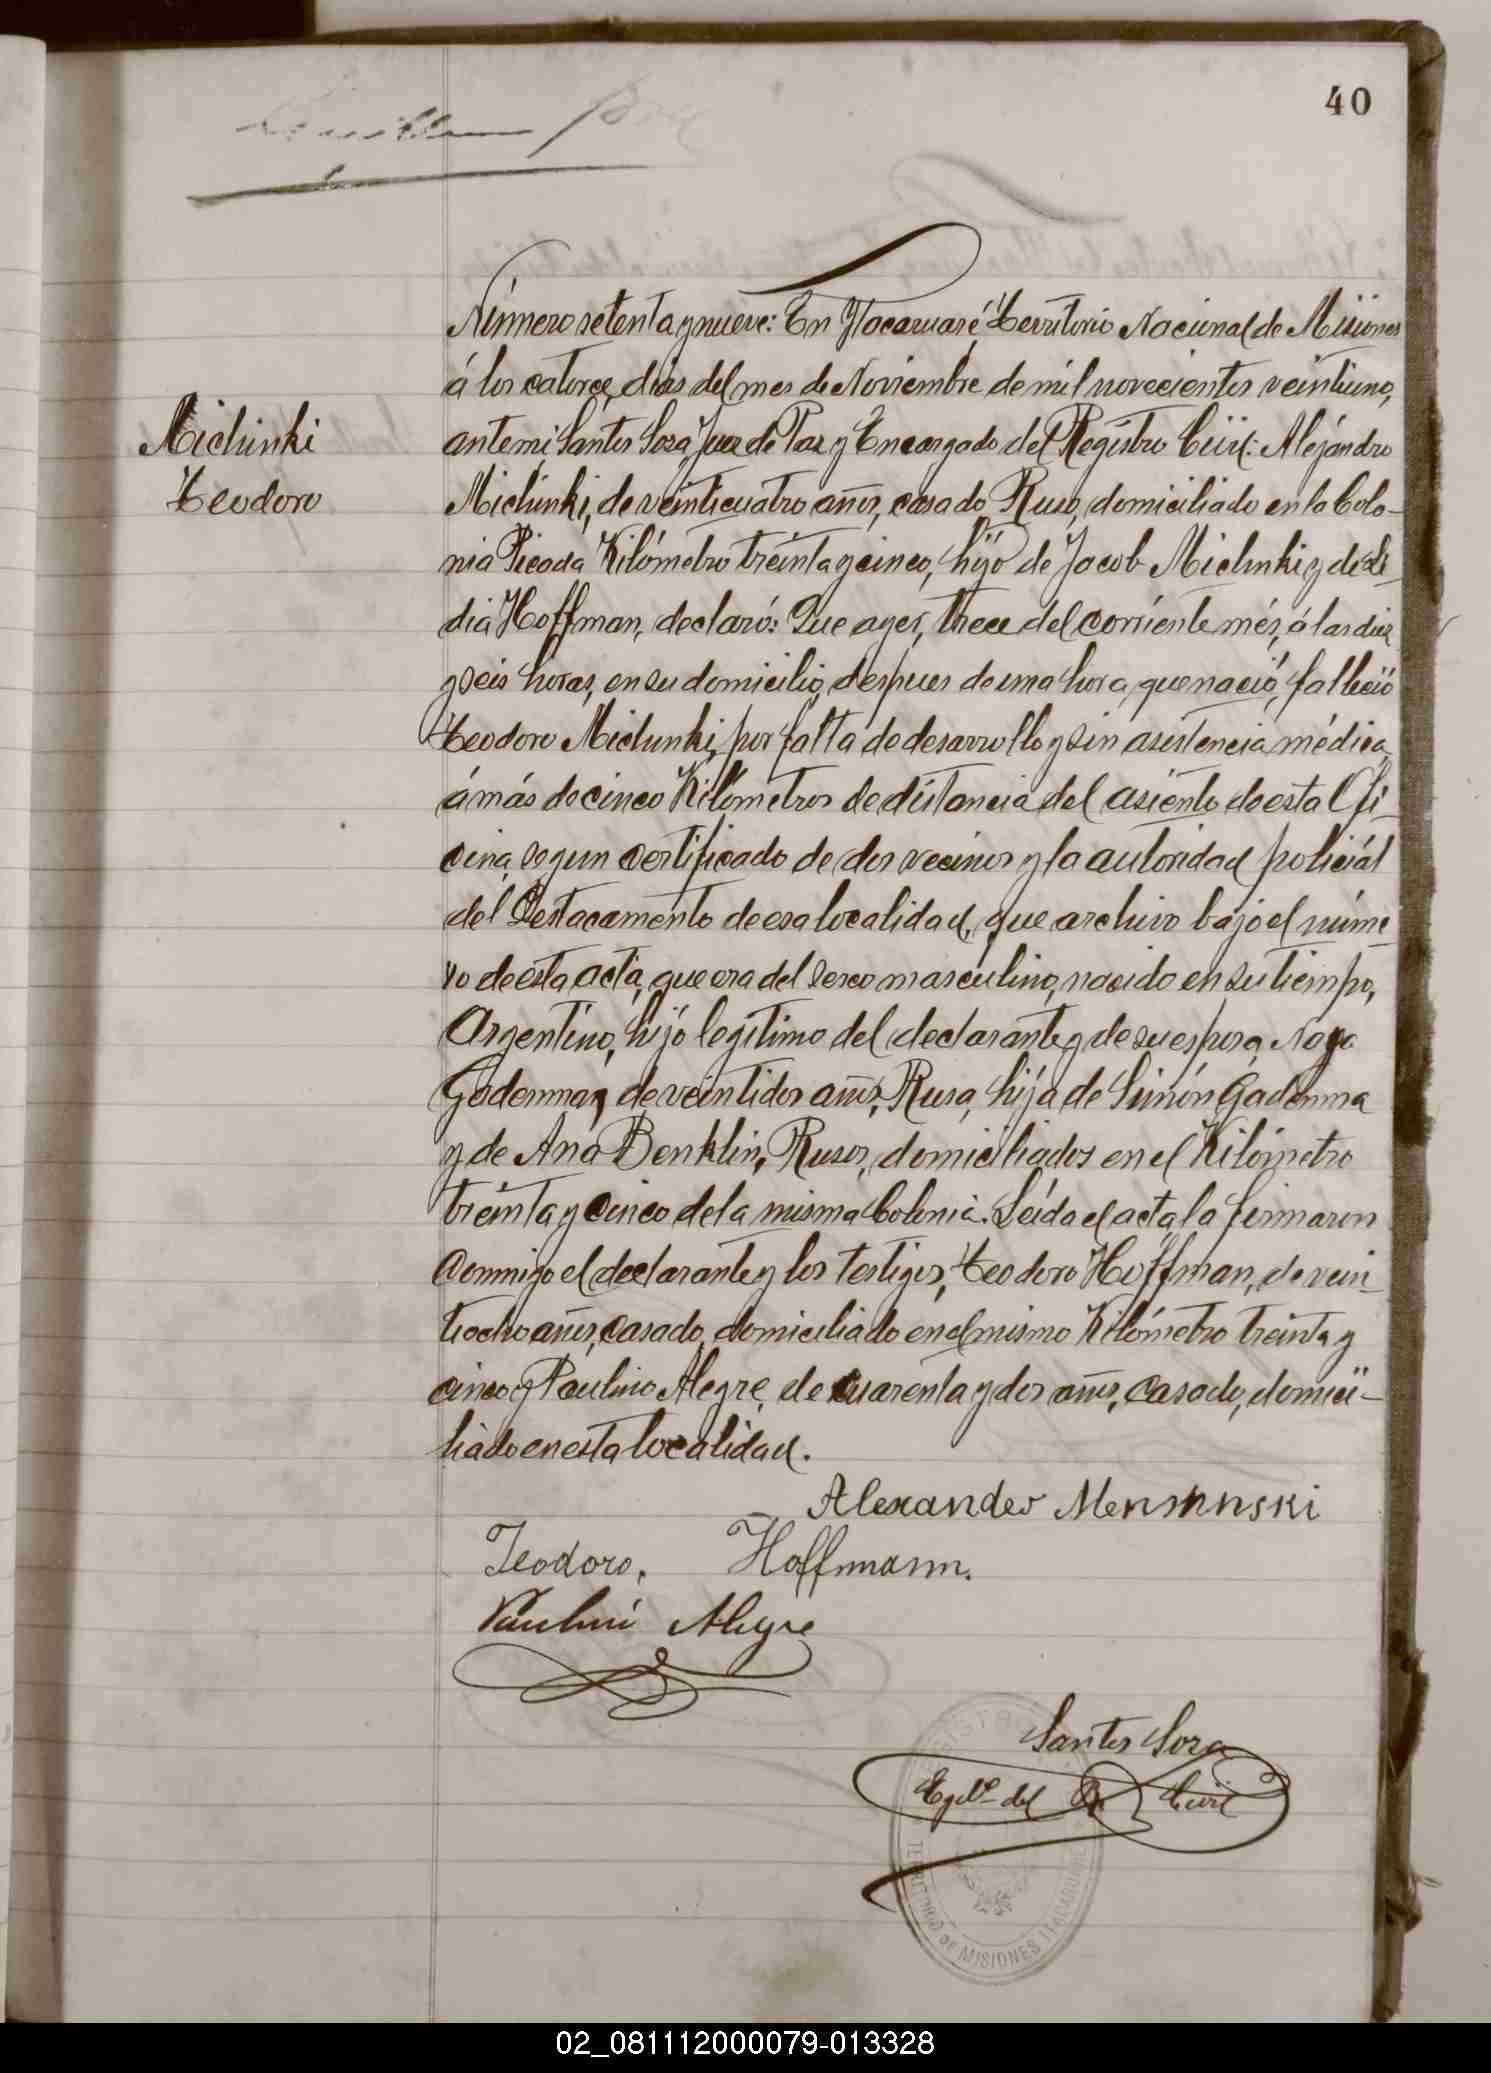 40
Número setenta y nueve: En Ytacaruaré, Territorio Nacional de Misiones
á los catorce, dias del mes de Noviembre de mil novecientos veintiuno,
ante mi Santos Sosa, Juez de Paz y Encargado del Registro Civil: Alejándro
Michinki
Teodoro
Michinki, de veinticuatro años, casado, Ruso, domiciliado en la Colo-
nia Picada Kilómetro treinta y cinco, hijo de Jacob Michinki y de Li-
dia Hoffman, declaró: Que ayer, trece del corriente més, á las diez
y seis horas, en su domicilio, despues de una hora, que nació, falleció
Teodoro Michinki, por falta de desarrollo y sin asistencia médica,
á más de cinco Kilómetros de distancia del asiento de esta Ofi-
cina, segun certificado de dos vecinos y la autoridad policiál
del Destacamento de esa localidad, que archivo bajo el núme-
ro de esta acta, que era del secso masculino, nacido en su tiempo,
Argentino, hijo legítimo del declarante y de su esposa
de veintidos años, Rusa, hija de Simón Gadenma
y de Ana Benklin, Rusos, domiciliados en el Kilómetro
treinta y cinco de la misma Colonia. Leída el acta, la firmaron
conmigo el declarante y los testigos, Teodoro Hoffman, de vein-
tiocho años, casado, domiciliado en el mismo Kilómetro treinta y
cinco y Paulino Alegre, de cuarenta y dos años, casado, domici-
liado en esta localidad.
Alexander
Teodoro, Hoffmann.
Paulini Alegre
Santos Sosa
Egdo. del R. Civil
TERRITORIO DE MISIONES ITACARUARÉ
02_081112000079-013328